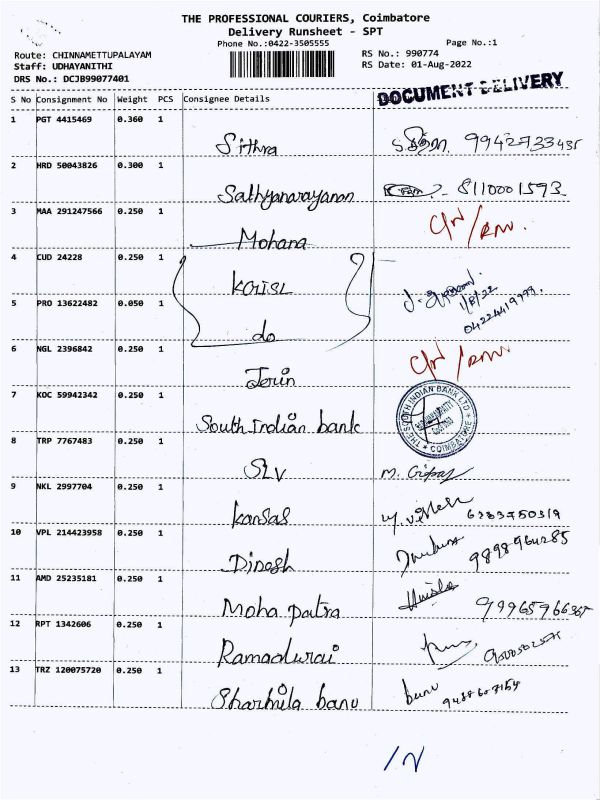 THE PROFESSIONAL COURIERS, Coimbatore
Delivery Runsheet - SPT
Phone No.:0422-3505555
Page No.:1
Route: CHINNAMETTUPALAYAM
Staff: UDHAYANITHI
DRS No.: DCJB99077401
RS No.: 990774
RS Date: 01-Aug-2022
DOCUMENT DELIVERY
S No Consignment No Weight PCS Consignee Details
1 PGT 4415469 0.360 1
Sithra 9942733435
2 HRD 50043826 0.300 1
Sathyanarayanan 8110001593
3 MAA 291247566 0.250 1
Mohana
4 CUD 24228 0.250 1
1/8/22
5 PRO 13622482 0.050 1
do 04224419999
6 NGL 2396842 0.250 1
Jerin
7 KOC 59942342 0.250 1
South Indian bank THE SOUTH INDIAN BANK LTD COIMBATORE
8 TRP 7767483 0.250 1
SLV
9 NKL 2997704 0.250 1
Kansas 6383750319
10 VPL 214423958 0.250 1
Dinesh
11 AMD 25235181 0.250 1
Moha patra
12 RPT 1342606 0.250 1
Ramadurai
13 TRZ 120075720 0.250 1
Sharmila banu banu